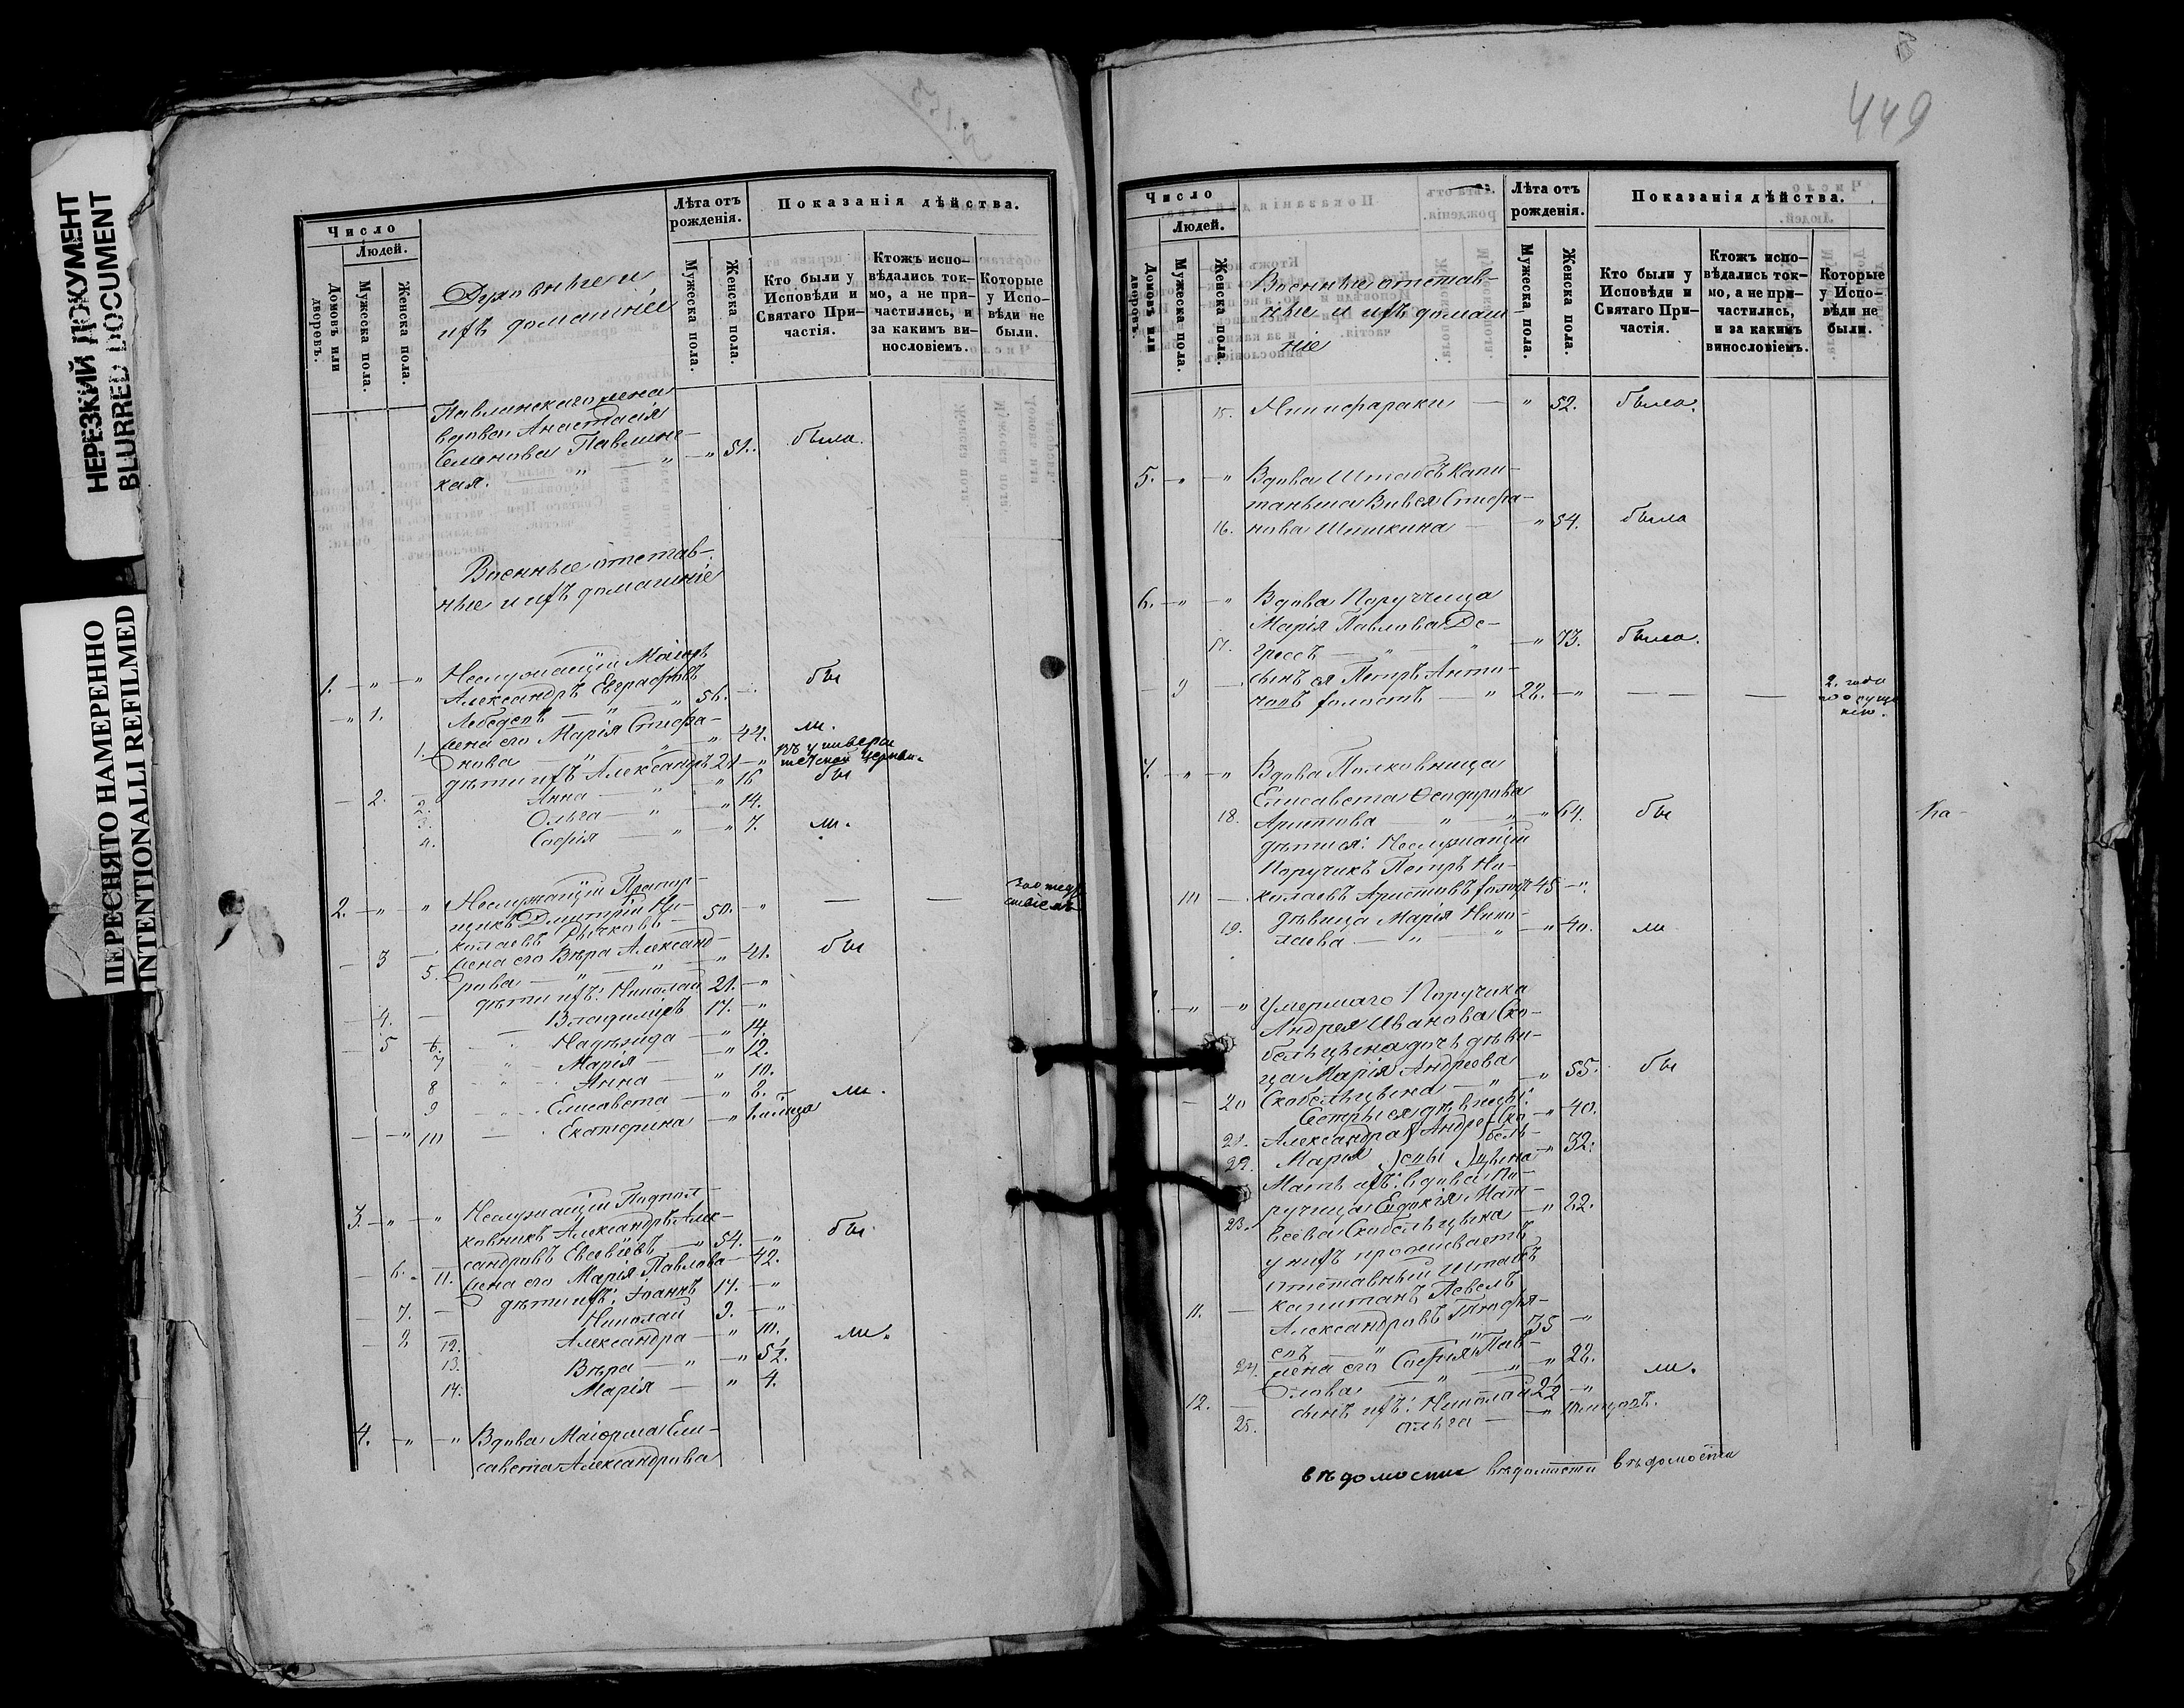 НЕРЕЗКИЙ ДОКУМЕНТ
BLURRED DOCUMENT
ПЕРЕСНЯТО НАМЕРЕННО
INTENTIONALLI REFILMED
Число
Людей.
Домовъ или дворовъ.
Мужеска пола.
Женска пола.
Духовные и
ихъ домашніе
Лѣта отъ рожденія.
Мужеска пола.
Женска пола.
Показанія дѣйства.
Кто были у Исповѣди и Святаго Причастія.
Ктожъ исповѣдались токмо, а не причастились, и за какимъ винословіемъ.
Которые у Исповѣди не были.
Павлинскаго жена
вдова Анастасія
Семенова Павлинс-
кая. — " — " — " 51. была.
Военные отстав-
ные и ихъ домашніе
1. — " — " Неслужащій Маіоръ
Александръ Евграфовъ
— " 1. Лебедевъ — " — " 56. — бы
жена его Марія Стефа-
1. нова — " — " 44. ли.
— 2. — дѣти ихъ Александръ 21 — " въ универси
тетской церкви.
2. Анна — " — " 16 бы
3. Ольга — " — " 14.
4. Софія — " — " 7. ли.
2. — " — " Неслужащій Прапор-
щикъ Дмитрій Ни-
— 3 — колаевъ Рычковъ — 50. — " — —
жена его Вѣра Александ-
5. рова — " — " 41. бы
— 4. — дѣти ихъ: Николай 21. — "
— 5 Владиміръ 17. — "
6. Надежда — " 14.
7 Марія — " 12.
8 Анна — " 10.
9 Елисавета — " 8. — ли.
— " 10 — Екатерина — "
3. — " — " Неслужащій Подпол-
ковникъ Александръ Алек-
— 6. — сандровъ Евсевіевъ — " 54. — " бы
11. жена его Марія Павлова — 42.
— 7. — дѣти ихъ: Іоаннъ 14. — "
— 8 Николай 9. — "
12. Александра — " 10. ли.
13. Вѣра — " — " 5½.
14. Марія — " 4.
4. — " — " Вдова Маіорша Ели-
савета Александрова
8
449
Число
Людей.
Домовъ или дворовъ.
Мужеска пола.
Женска пола.
Военные отстав-
ные и ихъ домаш
ніе
Лѣта отъ рожденія.
Мужеска пола.
Женска пола.
Показанія дѣйства.
Кто были у Исповѣди и Святаго Причастія.
Ктожъ исповѣдались токмо, а не причастились, и за какимъ винословіемъ.
Которые у Исповѣди не были.
15. — " 52. была.
5. — " — " Вдова Штабсъ Капи-
таньша Стефа-
16. нова Шишкина — " 54. была
6. — " — " Вдова Поручица
Марія Павлова Де-
17. — " — " 73. была.
9 — сынъ ея Петръ Анто-
новъ холостъ — " 22. — " — — 2. года
по
7. — " — " Вдова Полковница
Елисавета Ѳеодорова
18. Аристова — " — " 64. бы
дѣти ея: Неслужащій
Поручикъ Петръ Ни-
10 — колаевъ Аристовъ холостъ 45 — "
дѣвица Марія Нико-
19. лаева — " — " 40. ли
Ка-
— " — " Умершаго Поручика
Андрея Иванова Ско-
бельцына дочь дѣви-
ца Марія Андреева
— 20 Скобельцына — " — " 55. бы
Сестры ея дѣвицы:
21. Александра Андре- Ско — " 40.
22. Марія евы бельцына — " 32.
Мать ихъ: вдова По-
ручица Евдокія Мат-
23. веева Скобельцына — " 22.
у нихъ проживаетъ
отставный Штабсъ
капитанъ Павелъ
11. — Александровъ Тимофе-
евъ — " 35 — "
жена его Софія Пав-
24. лова — " — " 22. ли.
12. — сынъ ихъ: Николай 2½ — "
25. Ольга — " 10. мѣсяцовъ.
вѣдомости вѣдомости вѣдомости